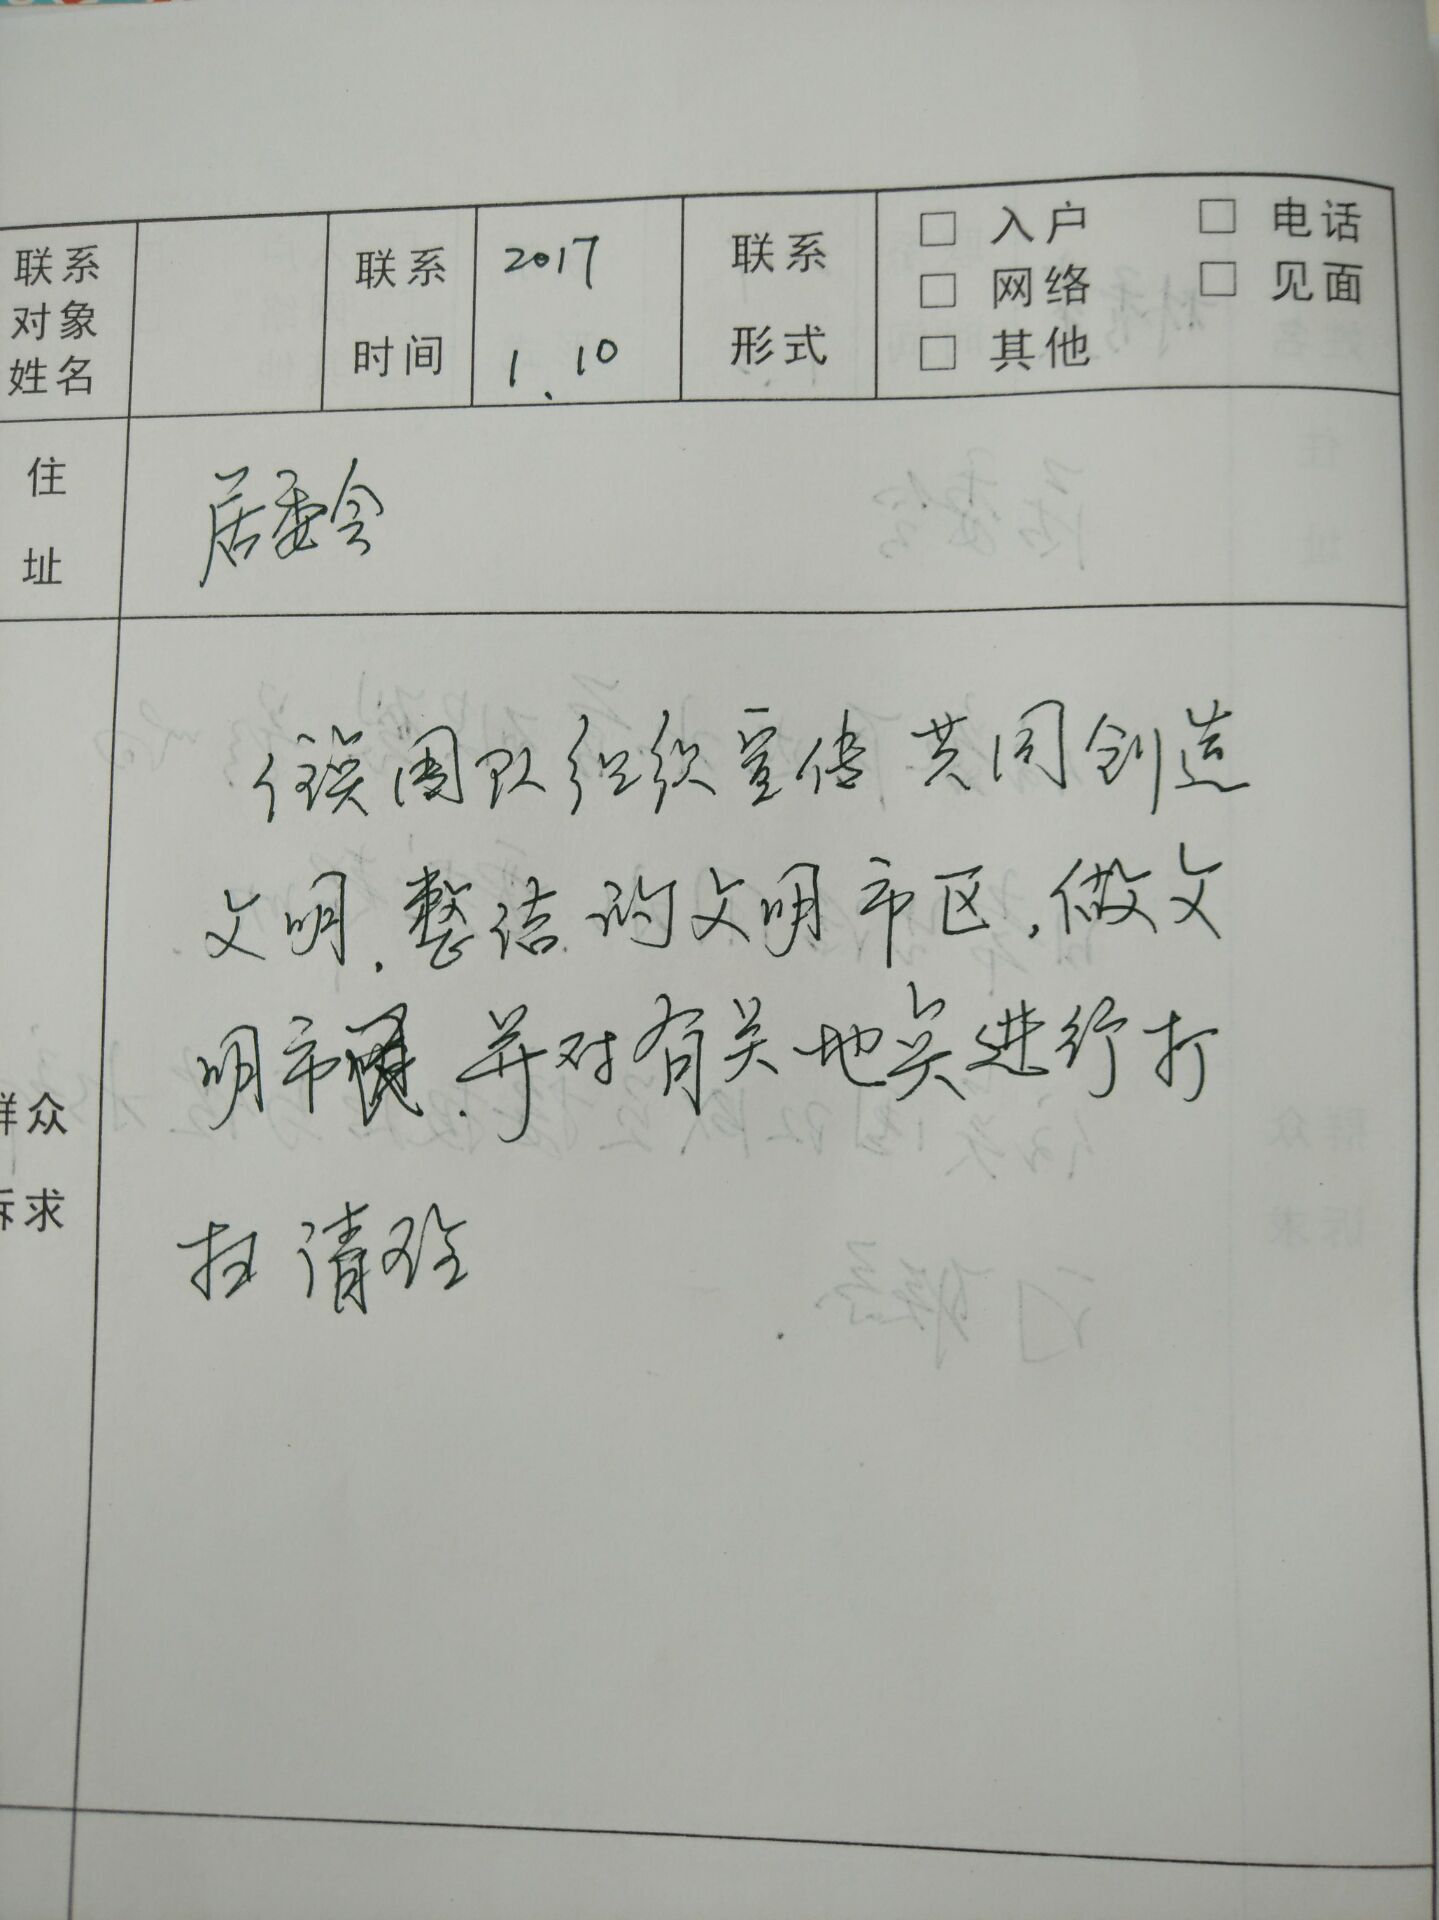 联系对象姓名 联系时间 2017 1.10 联系形式 □ 入户 □ 电话
□ 网络 □ 见面
□ 其他
住址 居委会
群众诉求
团队组织宣传共同创造
文明.整洁的文明市区,做文
明市民.并对有关地点进行打
扫清理